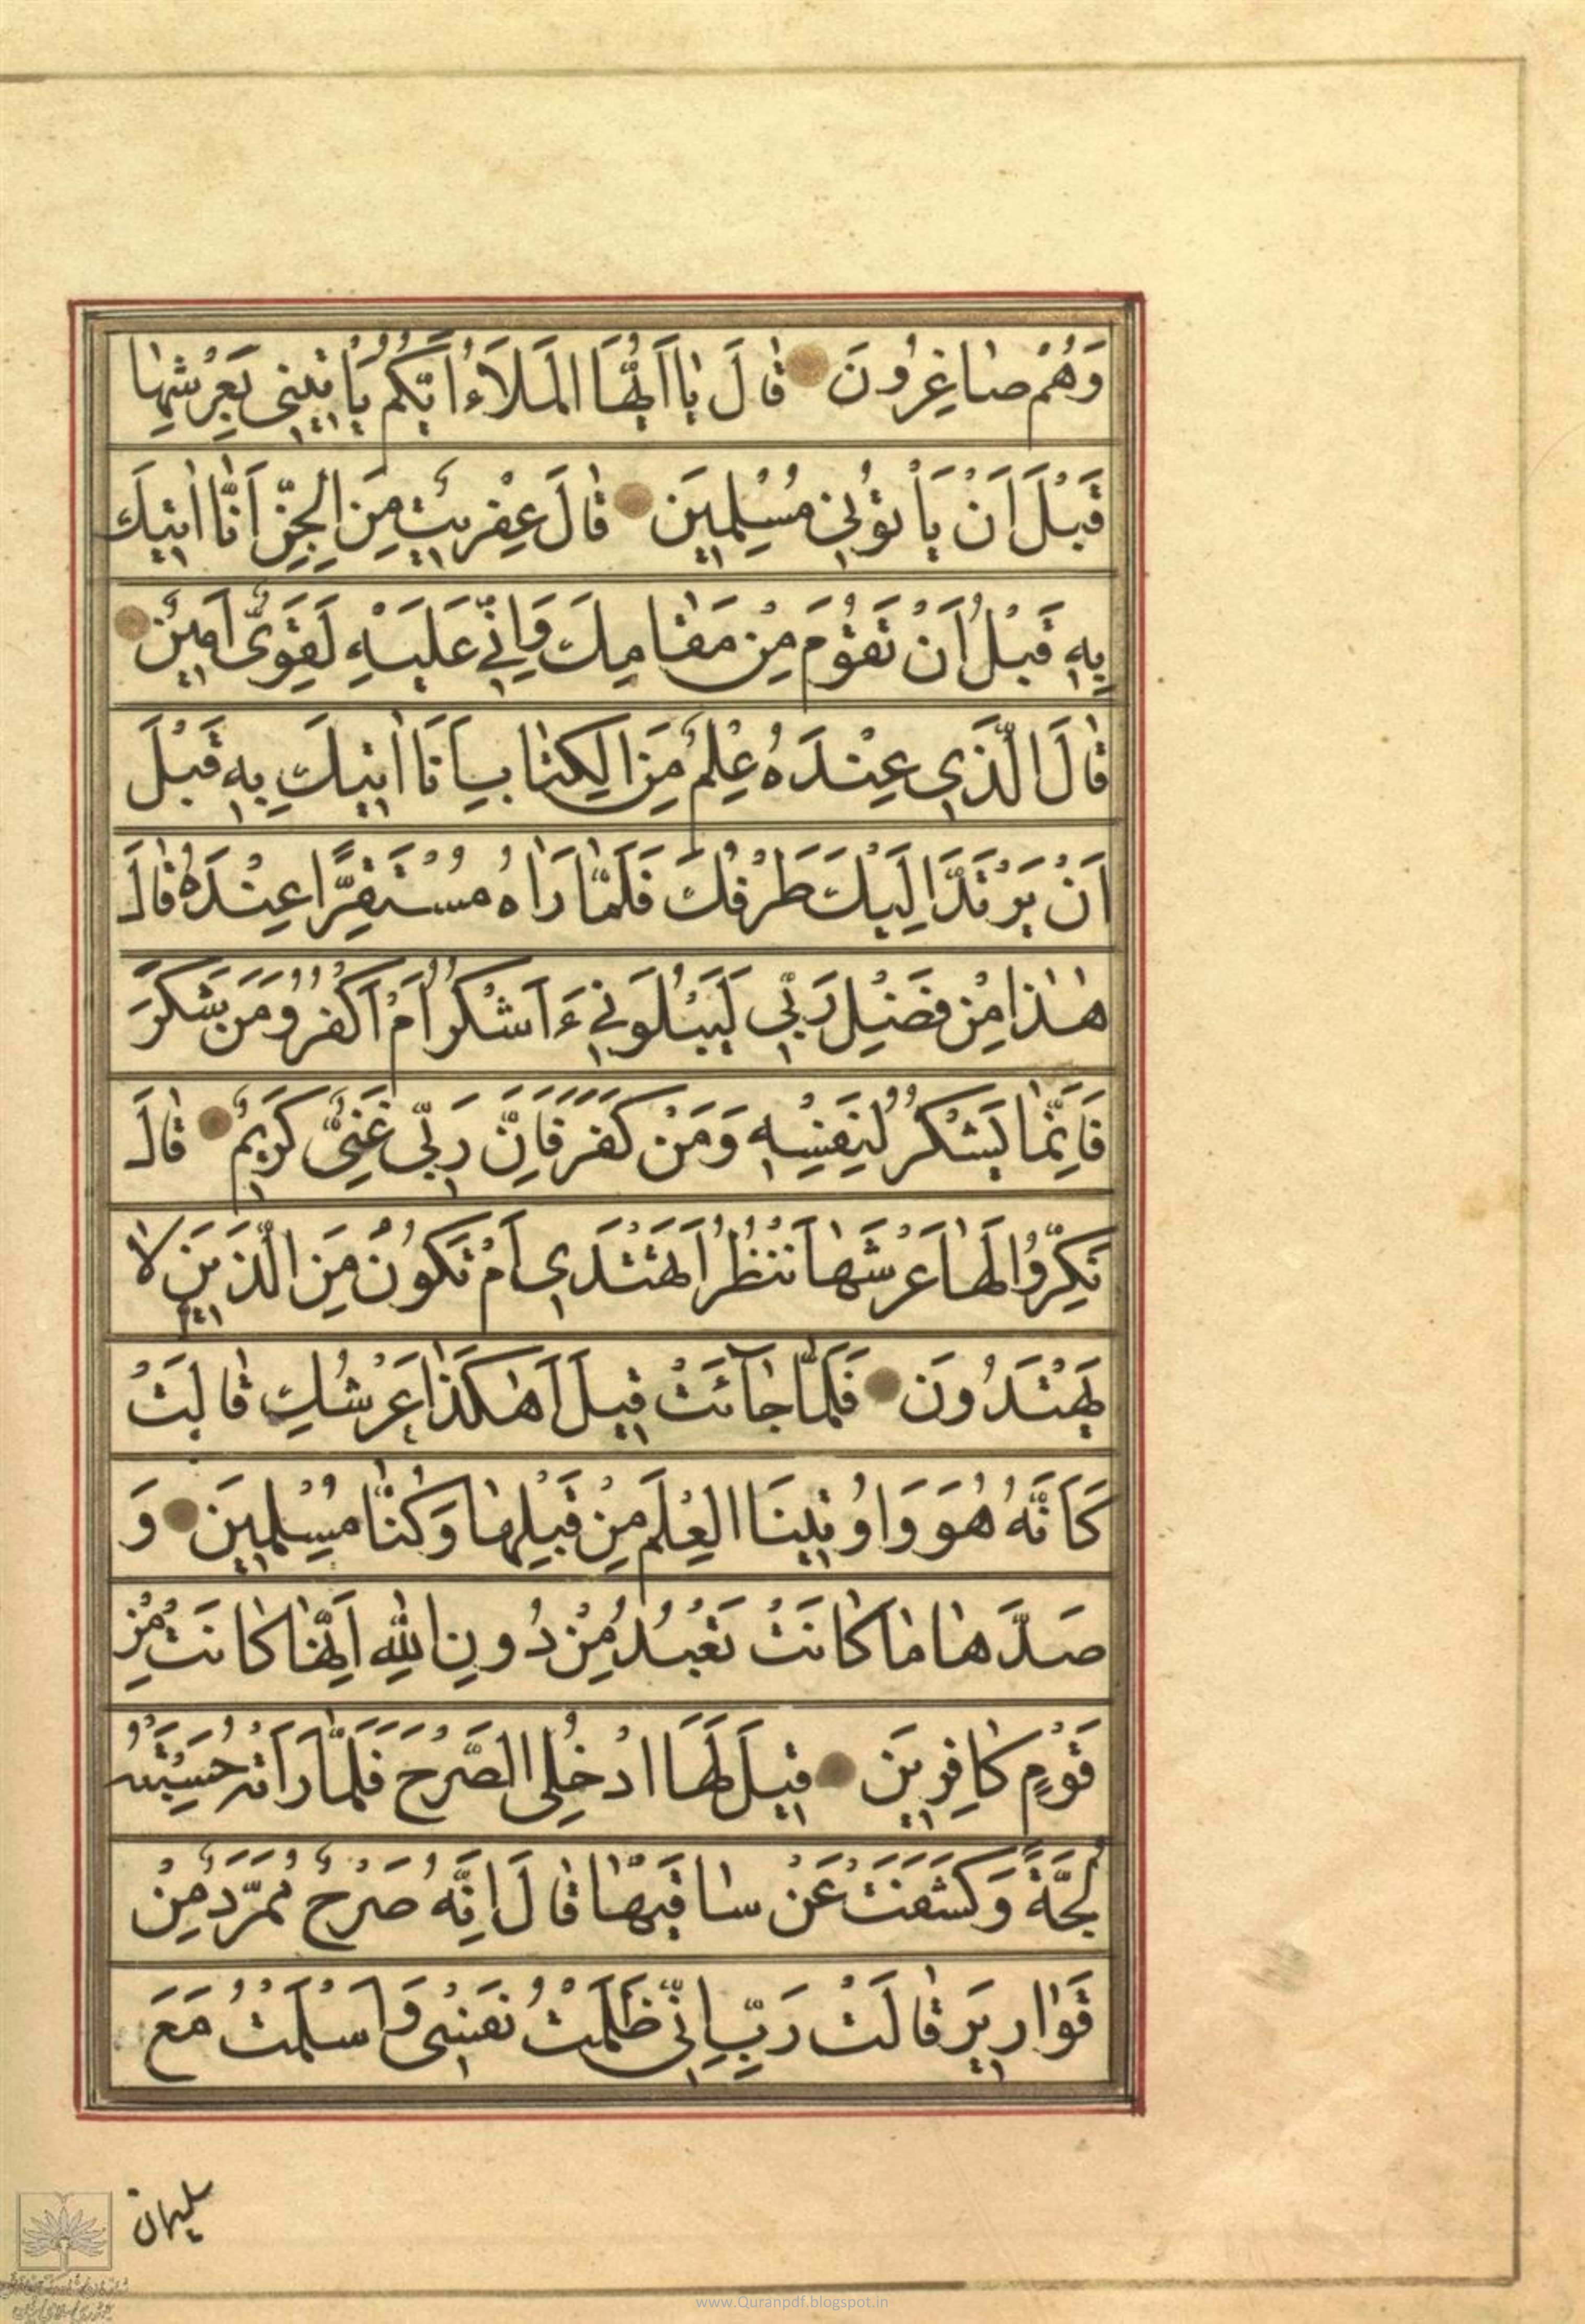 وَهُمْ صٰاغِرُونَ قٰالَ يٰا اَيُّهَا الْمَلَاءُ اَيُّكُمْ يَأْتِينِي بِعَرْشِهٰا
قَبْلَ اَنْ يَأْتُونِي مُسْلِمِينَ قٰالَ عِفْرِيتٌ مِنَ الْجِنِّ اَنَّا اٰتِيكَ
بِهِ قَبْلَ اَنْ تَقُومَ مِنْ مَقٰامِكَ وَاِنِّي عَلَيْهِ لَقَوِيٌّ اَمِينٌ
قٰالَ الَّذِي عِنْدَهُ عِلْمٌ مِنَ الْكِتٰابِ اَنَا اٰتِيكَ بِهِ قَبْلَ
اَنْ يَرْتَدَّ اِلَيْكَ طَرْفُكَ فَلَمّٰا رَاٰهُ مُسْتَقِرًّا عِنْدَهُ قٰالَ
هٰذٰا مِنْ فَضْلِ رَبِّي لِيَبْلُوَنِي ءَاَشْكُرُ اَمْ اَكْفُرُ وَمَنْ شَكَرَ
فَاِنَّمٰا يَشْكُرُ لِنَفْسِهِ وَمَنْ كَفَرَ فَاِنَّ رَبِّي غَنِيٌّ كَرِيمٌ قٰالَ
نَكِّرُوا لَهٰا عَرْشَهٰا نَنْظُرْ اَتَهْتَدِي اَمْ تَكُونُ مِنَ الَّذِينَ لٰا
يَهْتَدُونَ فَلَمّٰا جٰآئَتْ قِيلَ اَهٰكَذٰا عَرْشُكِ قٰالَتْ
كَاَنَّهُ هُوَ وَاُوتِينَا الْعِلْمَ مِنْ قَبْلِهٰا وَكُنّٰا مُسْلِمِينَ وَ
صَدَّهٰا مٰا كٰانَتْ تَعْبُدُ مِنْ دُونِ اللّٰهِ اِنَّهٰا كٰانَتْ مِنْ
قَوْمٍ كٰافِرِينَ قِيلَ لَهَا ادْخُلِي الصَّرْحَ فَلَمّٰا رَاَتْهُ حَسِبَتْهُ
لُجَّةً وَكَشَفَتْ عَنْ سٰاقَيْهٰا قٰالَ اِنَّهُ صَرْحٌ مُمَرَّدٌ مِنْ
قَوٰارِيرَ قٰالَتْ رَبِّ اِنِّي ظَلَمْتُ نَفْسِي وَاَسْلَمْتُ مَعَ
سليمان
www.Quranpdf.blogspot.in